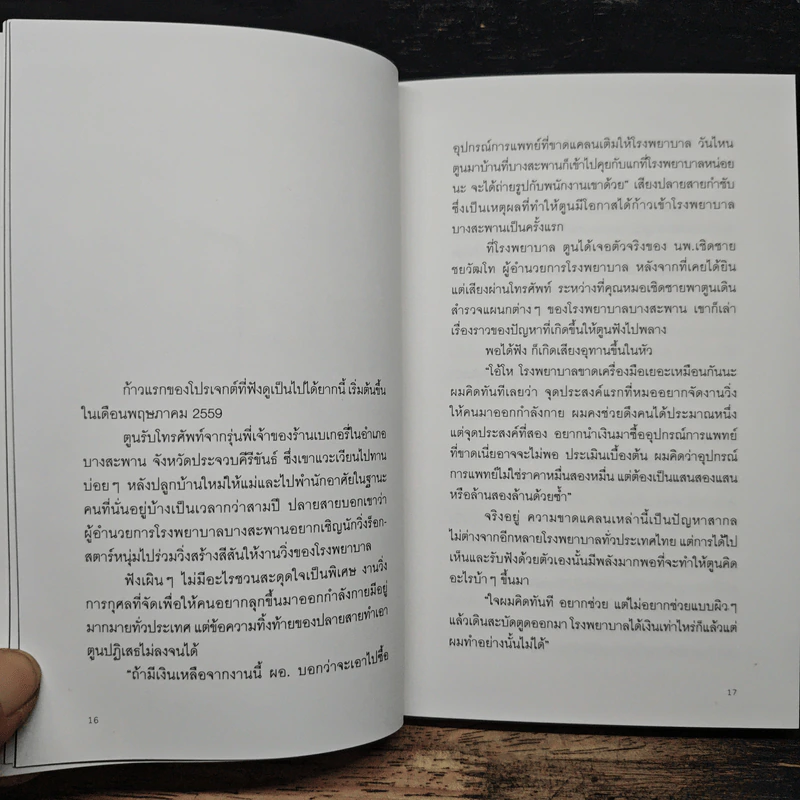 ก้าวแรกของโปรเจกต์ที่ฟังดูเป็นไปได้ยากนี้ เริ่มต้นขึ้น
ในเดือนพฤษภาคม 2559
ตูนรับโทรศัพท์จากรุ่นพี่เจ้าของร้านเบเกอรี่ในอำเภอ
บางสะพาน จังหวัดประจวบคีรีขันธ์ ซึ่งเขาแวะเวียนไปทาน
บ่อยๆ หลังปลูกบ้านใหม่ให้แม่และไปพำนักอาศัยในฐานะ
คนที่นั่นอยู่บ้างเป็นเวลากว่าสามปี ปลายสายบอกเขาว่า
ผู้อำนวยการโรงพยาบาลบางสะพานอยากเชิญนักวิ่งร็อก-
สตาร์หนุ่มไปร่วมวิ่งสร้างสีสันให้งานวิ่งของโรงพยาบาล
ฟังเผินๆ ไม่มีอะไรชวนสะดุดใจเป็นพิเศษ งานวิ่ง
การกุศลที่จัดเพื่อให้คนอยากลุกขึ้นมาออกกำลังกายมีอยู่
มากมายทั่วประเทศ แต่ข้อความทิ้งท้ายของปลายสายทำเอา
ตูนปฏิเสธไม่ลงจนได้
“ถ้ามีเงินเหลือจากงานนี้ ผอ. บอกว่าจะเอาไปซื้อ
16
อุปกรณ์การแพทย์ที่ขาดแคลนเติมให้โรงพยาบาล วันไหน
ตูนมาบ้านที่บางสะพานก็เข้าไปคุยกับแกที่โรงพยาบาลหน่อย
นะ จะได้ถ่ายรูปกับพนักงานเขาด้วย” เสียงปลายสายกำชับ
ซึ่งเป็นเหตุผลที่ทำให้ตูนมีโอกาสได้ก้าวเข้าโรงพยาบาล
บางสะพานเป็นครั้งแรก
ที่โรงพยาบาล ตูนได้เจอตัวจริงของ นพ.เชิดชาย
ชยวัฑโท ผู้อำนวยการโรงพยาบาล หลังจากที่เคยได้ยิน
แต่เสียงผ่านโทรศัพท์ ระหว่างที่คุณหมอเชิดชายพาตูนเดิน
สำรวจแผนกต่างๆ ของโรงพยาบาลบางสะพาน เขาก็เล่า
เรื่องราวของปัญหาที่เกิดขึ้นให้ตูนฟังไปพลาง
พอได้ฟัง ก็เกิดเสียงอุทานขึ้นในหัว
“โอ้โห โรงพยาบาลขาดเครื่องมือเยอะเหมือนกันนะ
ผมคิดทันทีเลยว่า จุดประสงค์แรกที่หมออยากจัดงานวิ่ง
ให้คนมาออกกำลังกาย ผมคงช่วยดึงคนได้ประมาณหนึ่ง
แต่จุดประสงค์ที่สอง อยากนำเงินมาซื้ออุปกรณ์การแพทย์
ที่ขาดเนี่ยอาจจะไม่พอ ประเมินเบื้องต้น ผมคิดว่าอุปกรณ์
การแพทย์ไม่ใช่ราคาหมื่นสองหมื่น แต่ต้องเป็นแสนสองแสน
หรือล้านสองล้านด้วยซ้ำ”
จริงอยู่ ความขาดแคลนเหล่านี้เป็นปัญหาสากล
ไม่ต่างจากอีกหลายโรงพยาบาลทั่วประเทศไทย แต่การได้ไป
เห็นและรับฟังด้วยตัวเองนั้นมีพลังมากพอที่จะทำให้ตูนคิด
อะไรบ้าๆ ขึ้นมา
“ใจผมคิดทันที อยากช่วย แต่ไม่อยากช่วยแบบผิวๆ
แล้วเดินสะบัดตูดออกมา โรงพยาบาลได้เงินเท่าไหร่ก็แล้วแต่
ผมทำอย่างนั้นไม่ได้”
17